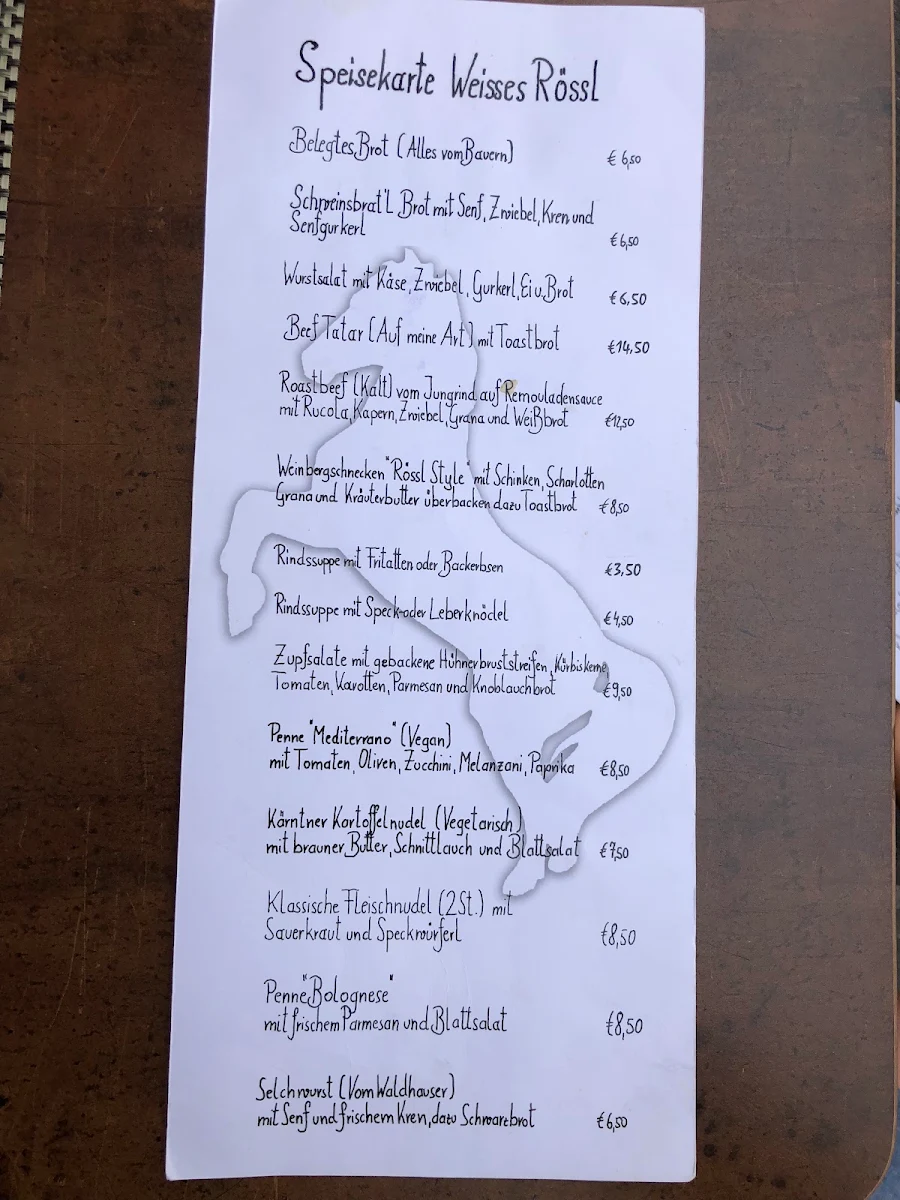 Speisekarte Weisses Rössl
Belegtes Brot (Alles vom Bauern) € 6,50
Schweinsbrat'l Brot mit Senf, Zwiebel, Kren und
Senfgurkerl € 6,50
Wurstsalat mit Käse, Zwiebel, Gurkerl, Ei u. Brot € 6,50
Beef Tatar (Auf meine Art) mit Toastbrot €14,50
Roastbeef (Kalt) vom Jungrind auf Remouladensauce
mit Rucola, Kapern, Zwiebel, Grana und Weißbrot €12,50
Weinbergschnecken "Rössl Style" mit Schinken, Scharlotten
Grana und Kräuterbutter überbacken dazu Toastbrot €8,50
Rindssuppe mit Fritatten oder Backerbsen €3,50
Rindssuppe mit Speck-oder Leberknödel €4,50
Zupfsalate mit gebackene Hühnerbruststreifen, Kürbiskerne,
Tomaten, Karotten, Parmesan und Knoblauchbrot €9,50
Penne "Mediterrano" (Vegan)
mit Tomaten, Oliven, Zucchini, Melanzani, Paprika €8,50
Kärntner Kartoffelnudel (Vegetarisch)
mit brauner Butter, Schnittlauch und Blattsalat €7,50
Klassische Fleischnudel (2St.) mit
Sauerkraut und Speckwürferl €8,50
Penne "Bolognese"
mit frischem Parmesan und Blattsalat €8,50
Selchwurst (Vom Waldhauser)
mit Senf und frischem Kren, dazu Schwarzbrot €6,50